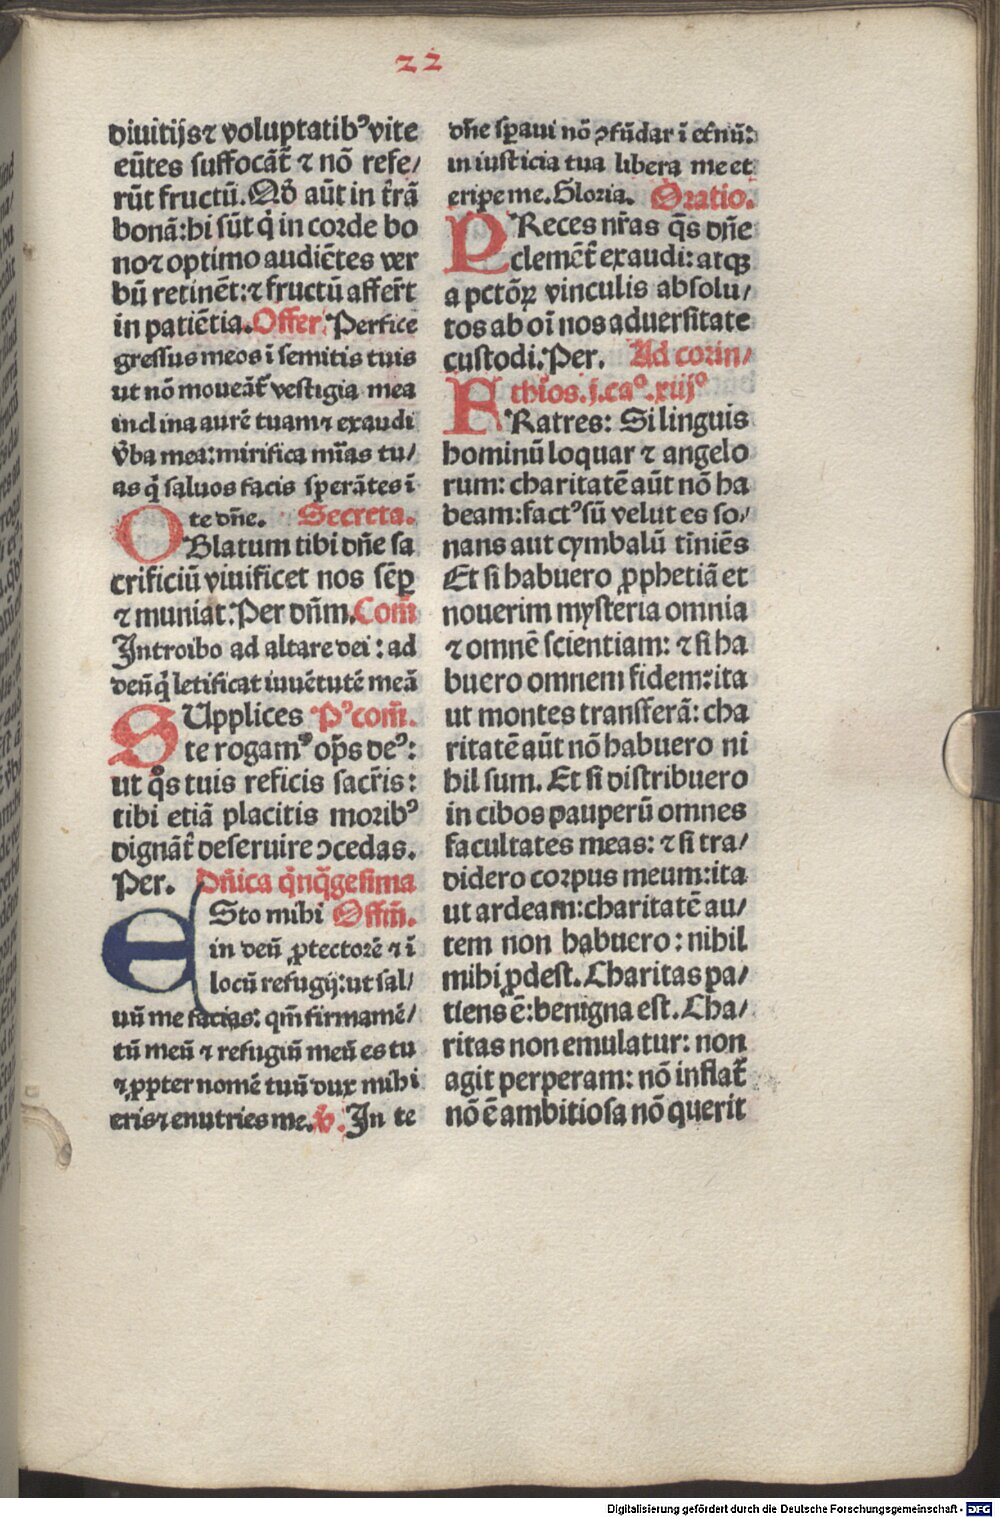 22
diuitijs ⁊ voluptatibꝰ vite
eūtes suffocāt᷑ ⁊ nō refe/
rūt fructū. Qd̕ aūt in t̄rā
bonā: hi sūt q̇ in corde bo
no ⁊ optimo audiētes ver
bū retinēt: ⁊ fructū affer̄t
in patiētia. Offer̄. Perfice
gressus meos ī semitis tuis
ut nō moueāt᷑ vestigia mea
inclina aurē tuam ⁊ exaudi
v̕ba mea: mirifica mīas tu/
as q̇ saluos facis sperātes ī
te dn̄e. Secreta.
OBlatum tibi dn̄e sa
crificiū viuificet nos sēꝑ
⁊ muniat. Per dn̄m. Com̄
Introibo ad altare dei: ad
deū q̇ letificat iuuētutē meā
SUpplices Pꝰ com̄.
te rogamꝰ op̄s deꝰ:
ut q̊s tuis reficis sacr̄is:
tibi etiā placitis moribꝰ
dignāt̄ deseruire ↄcedas.
Per. Dn̄ica q̇nq̄gesima
ESto mihi Offm̄.
in deū ꝓtectorē ⁊ ī
locū refugij: ut sal/
uū me facias: qm̄ firmamē/
tū meū ⁊ refugiū meū es tu
⁊ ꝓpter nomē tuū dux mihi
eris ⁊ enutries me. v̕. In te
dn̄e sꝑaui nō ↄfūdar ī et̄nū:
in iusticia tua libera me et
eripe me. Gloria. Oratio.
PReces nr̄as q̄s dn̄e
clemēt̄ exaudi: atqꝫ
a pctōꝝ vinculis absolu/
tos ab oī nos aduersitate
custodi. Per. Ad corin/
thios. j. caº. xiijº
FRatres: Si linguis
hominū loquar ⁊ angelo
rum: charitatē aūt nō ha
beam: factꝰ sū velut es so/
nans aut cymbalū tīniēs
Et si habuero ꝓphetiā et
nouerim mysteria omnia
⁊ omnē scientiam: ⁊ si ha
buero omnem fidem: ita
ut montes transferā: cha
ritatē aūt nō habuero ni
hil sum. Et si distribuero
in cibos pauperū omnes
facultates meas: ⁊ si tra/
didero corpus meum: ita
ut ardeam: charitatē au/
tem non habuero: nihil
mihi ꝓdest. Charitas pa/
tiens ē: benigna est. Cha/
ritas non emulatur: non
agit perperam: nō inflat᷑
nō ē ambitiosa nō querit
Digitalisierung gefördert durch die Deutsche Forschungsgemeinschaft - DFG